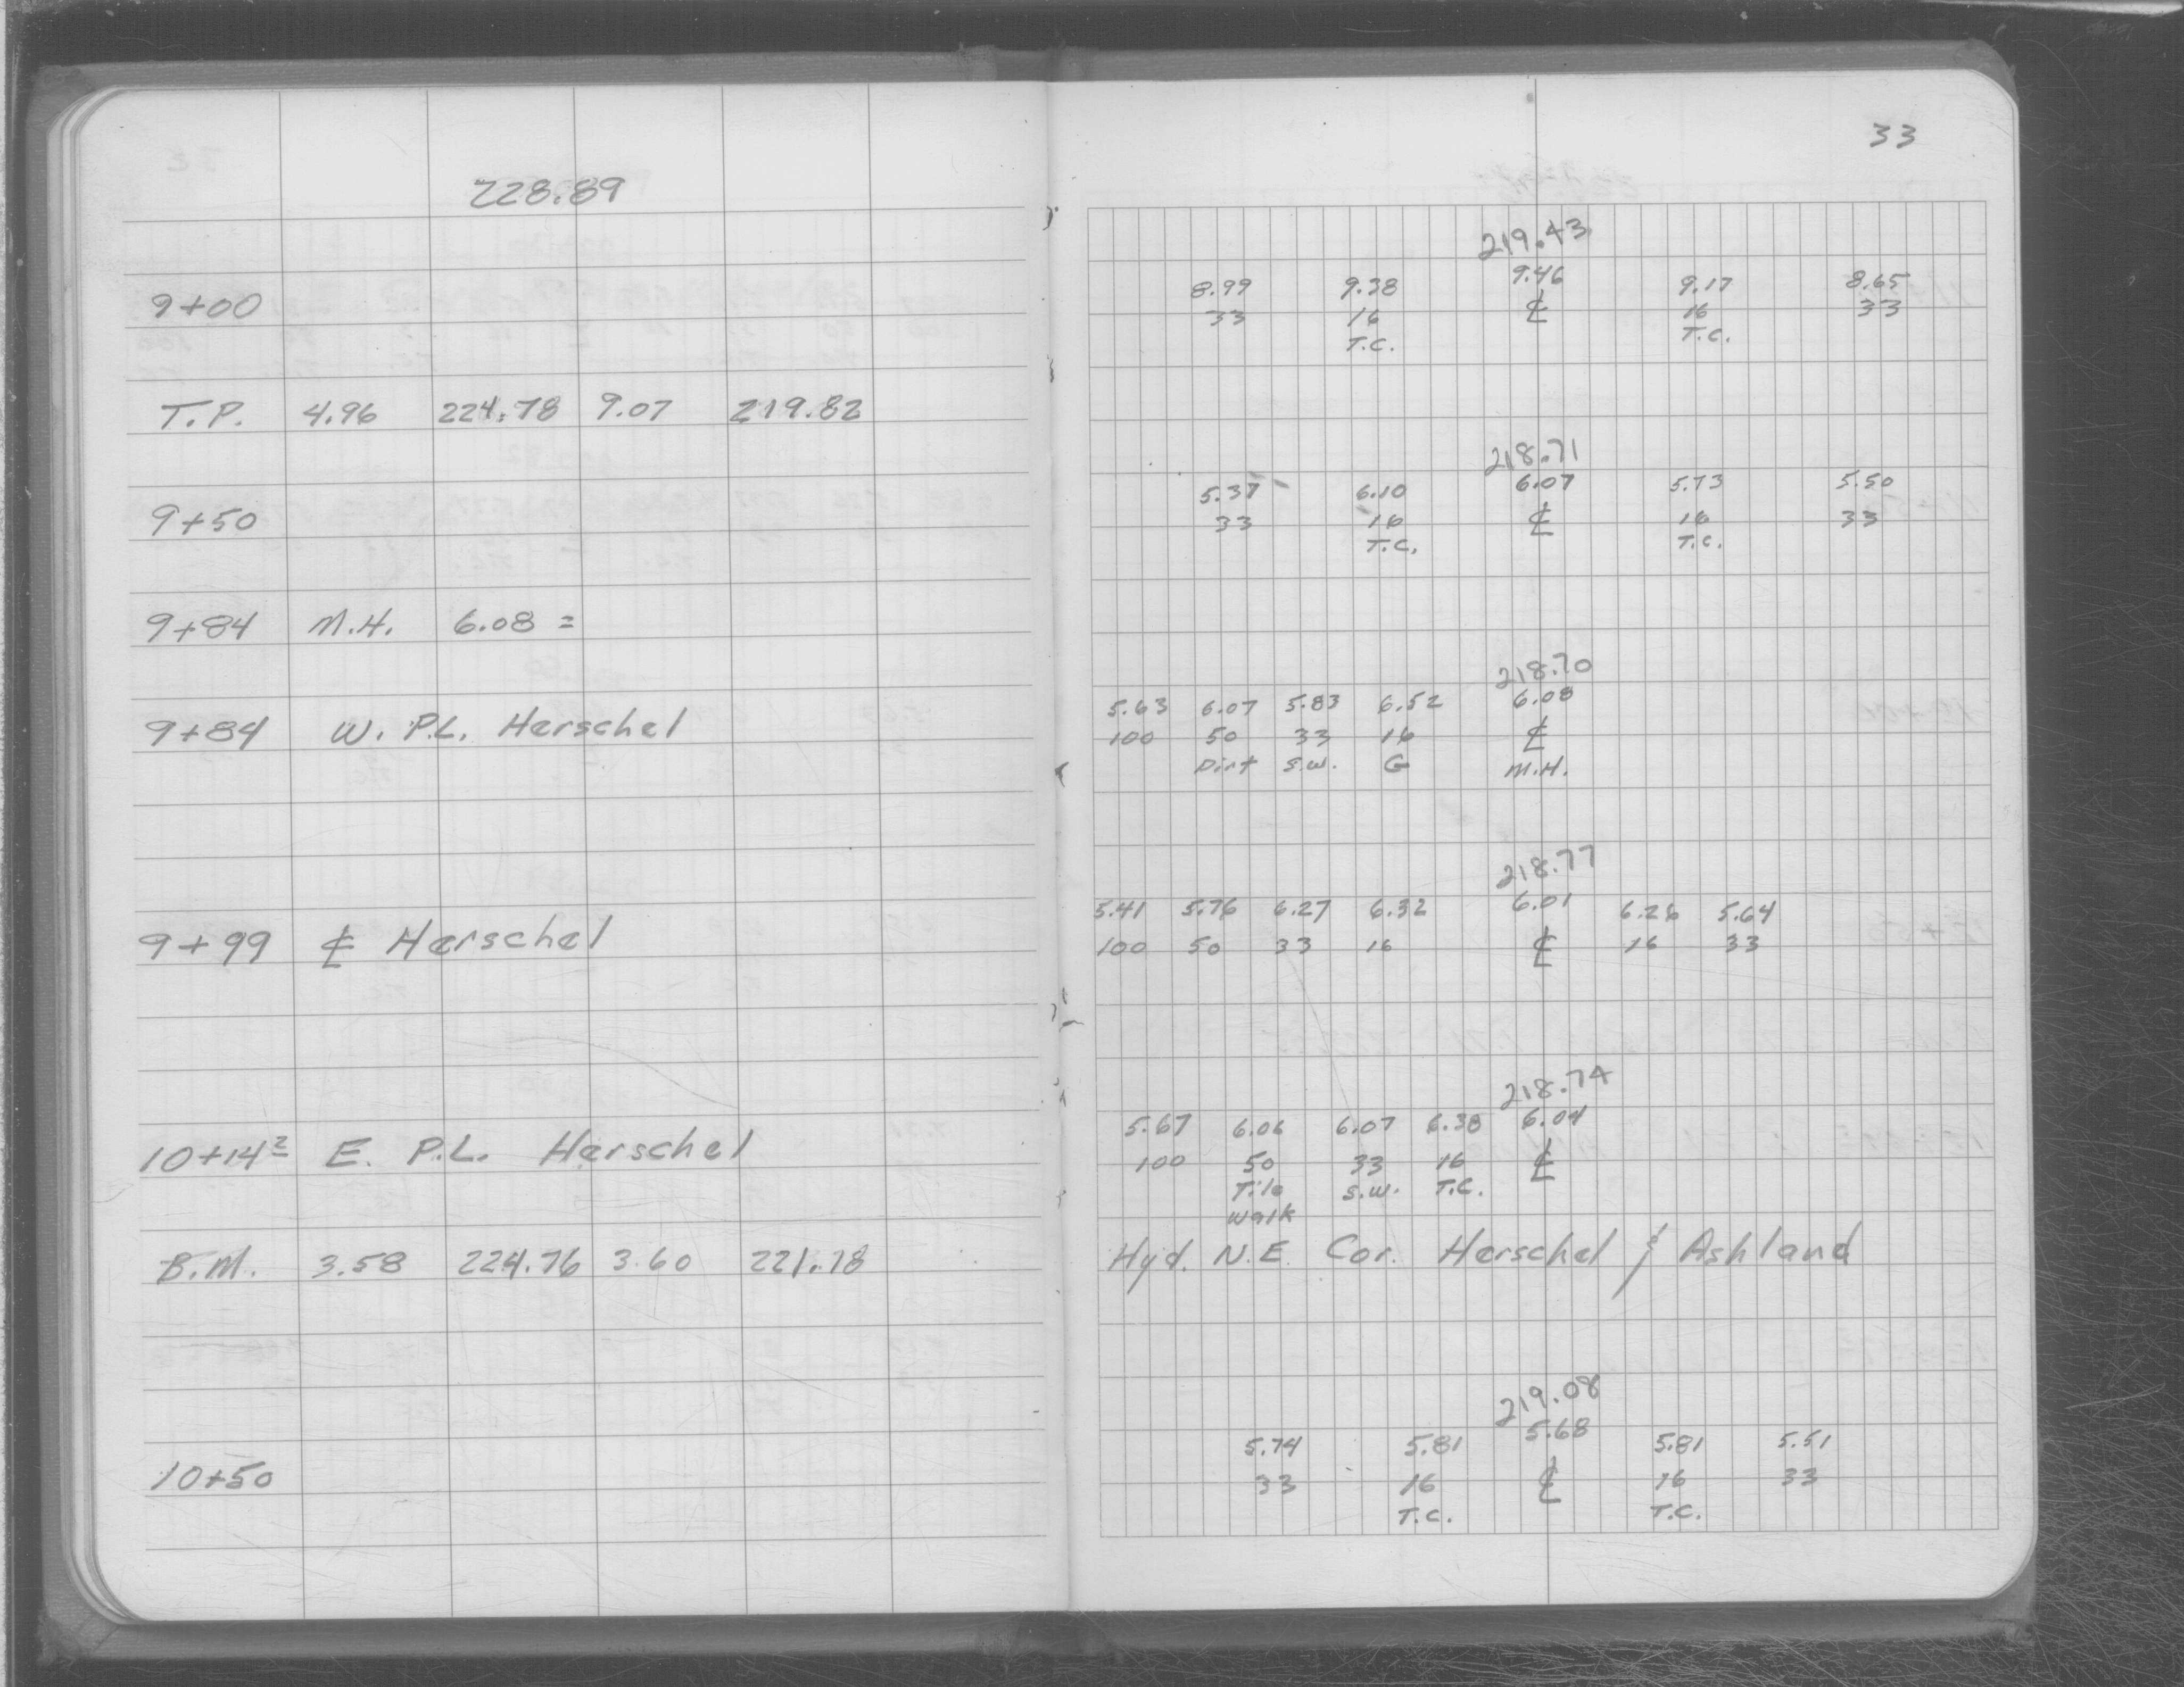 33
228.89
219.43
8.99 9.38 9.46 9.17 8.65
9+00 33 16 ℄ 16 33
T.C. T.C.
T.P. 4.96 224.78 9.07 219.82
218.71
5.37 6.10 6.07 5.73 5.50
9+50 33 16 ℄ 16 33
T.C. T.C.
9+84 M.H. 6.08 =
218.70
5.63 6.07 5.83 6.52 6.08
9+84 W. P.L. Herschel 100 50 33 16 ℄
Dirt S.W. G M.H.
218.77
5.41 5.76 6.27 6.32 6.01 6.26 5.64
9+99 ℄ Herschel 100 50 33 16 ℄ 16 33
218.74
5.67 6.06 6.07 6.38 6.04
10+14² E. P.L. Herschel 100 50 33 16 ℄
Tile S.W. T.C.
Walk
B.M. 3.58 224.76 3.60 221.18 Hyd. N.E. Cor. Herschel & Ashland
219.08
5.74 5.81 5.68 5.81 5.51
10+50 33 16 ℄ 16 33
T.C. T.C.